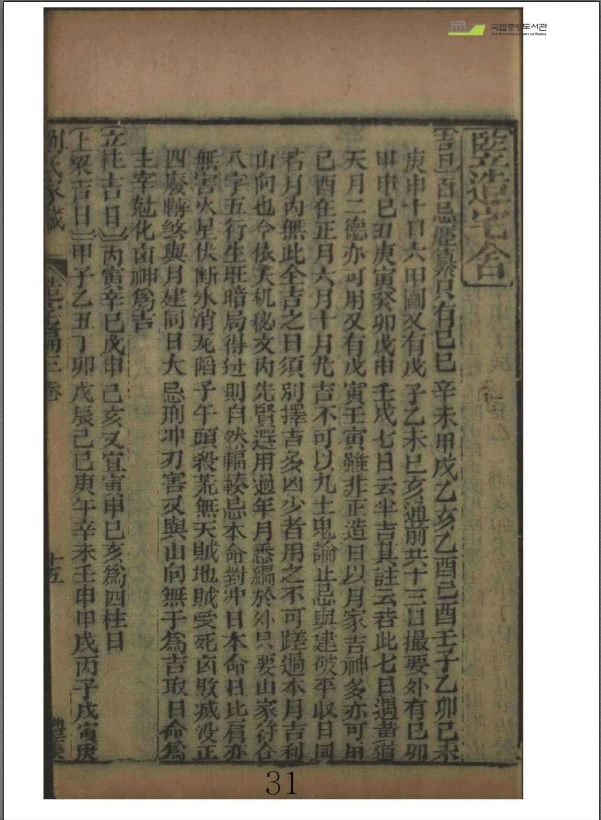 국립중앙도서관
豎造宅舍
吉日 百忌曆纂只有己巳 辛未甲戌乙亥乙酉己酉壬子乙卯己未
庚申十日六甲圖又有戊子乙未己亥通前共十三日撮要外有己卯
甲申己丑庚寅癸卯戊申壬戌七日云半吉其註云若此七日遇黃道
天月二德亦可用又有戊寅壬寅雖非正造日以月家吉神多亦可用
己酉在正月六月十月九吉不可以九土鬼論止忌與建破平收日同
若月內無此全吉之日須別擇吉多凶少者用之不可蹉過本月吉利
山向也今依天机秘文內先賢選用過年月悉編於外只要山家符合
八字五行生旺暗局得过則自然輻輳忌本命對冲日本命日比肩亦
無害火星伏断氷消瓦陷子午頭殺荒無天賊地賊受死凶敗滅沒正
四廢轉煞與月建同日大忌刑冲刃害又與山向無干為吉取日命為
主宰尅化凶神為吉
立柱吉日 丙寅辛巳戊申己亥又宜寅申巳亥為四柱日
上梁吉日 甲子乙丑丁卯戊辰己巳庚午辛未壬申甲戌丙子戊寅庚
三卷
十五
31